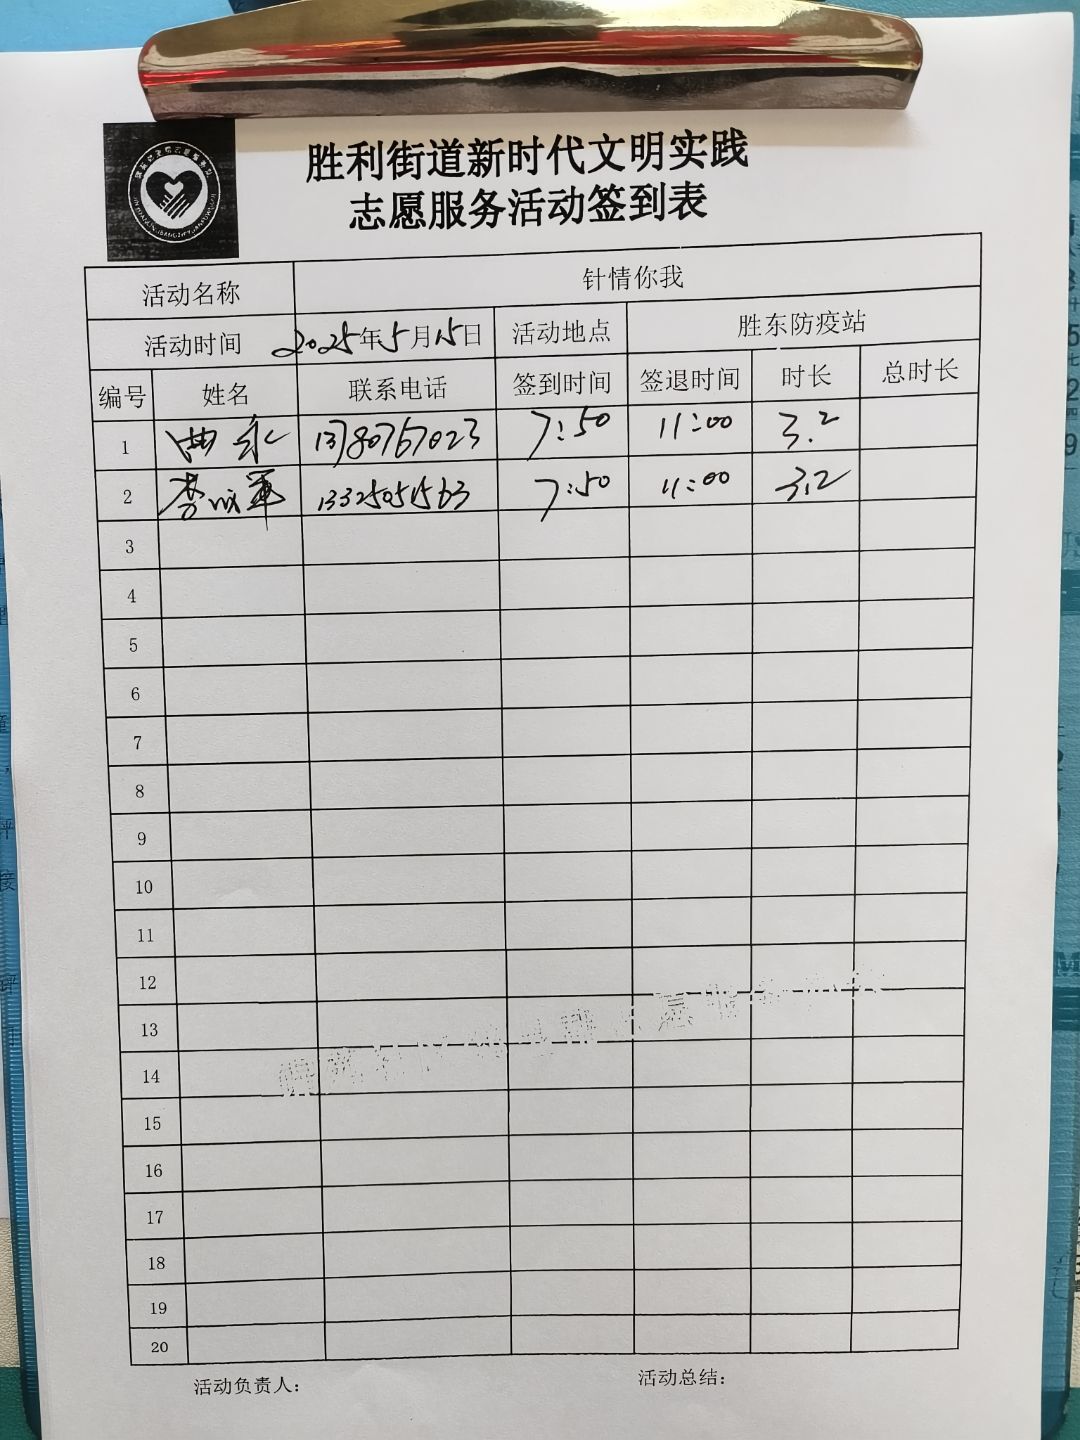 胜利街道新时代文明实践
志愿服务活动签到表
活动名称 针情你我
活动时间 2025年5月15日 活动地点 胜东防疫站
编号 姓名 联系电话 签到时间 签退时间 时长 总时长
1 曲永 13780767023 7:50 11:00 3.2
2 李成军 13325051563 7:50 11:00 3.2
3
4
5
6
7
8
9
10
11
12
13
14
15
16
17
18
19
20
活动负责人: 活动总结: